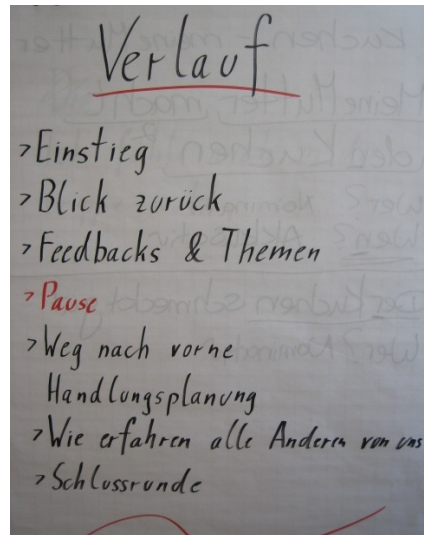 Verlauf
>Einstieg
>Blick zurück
>Feedbacks & Themen
>Pause
>Weg nach vorne
Handlungsplanung
>Wie erfahren alle Anderen von uns
>Schlussrunde